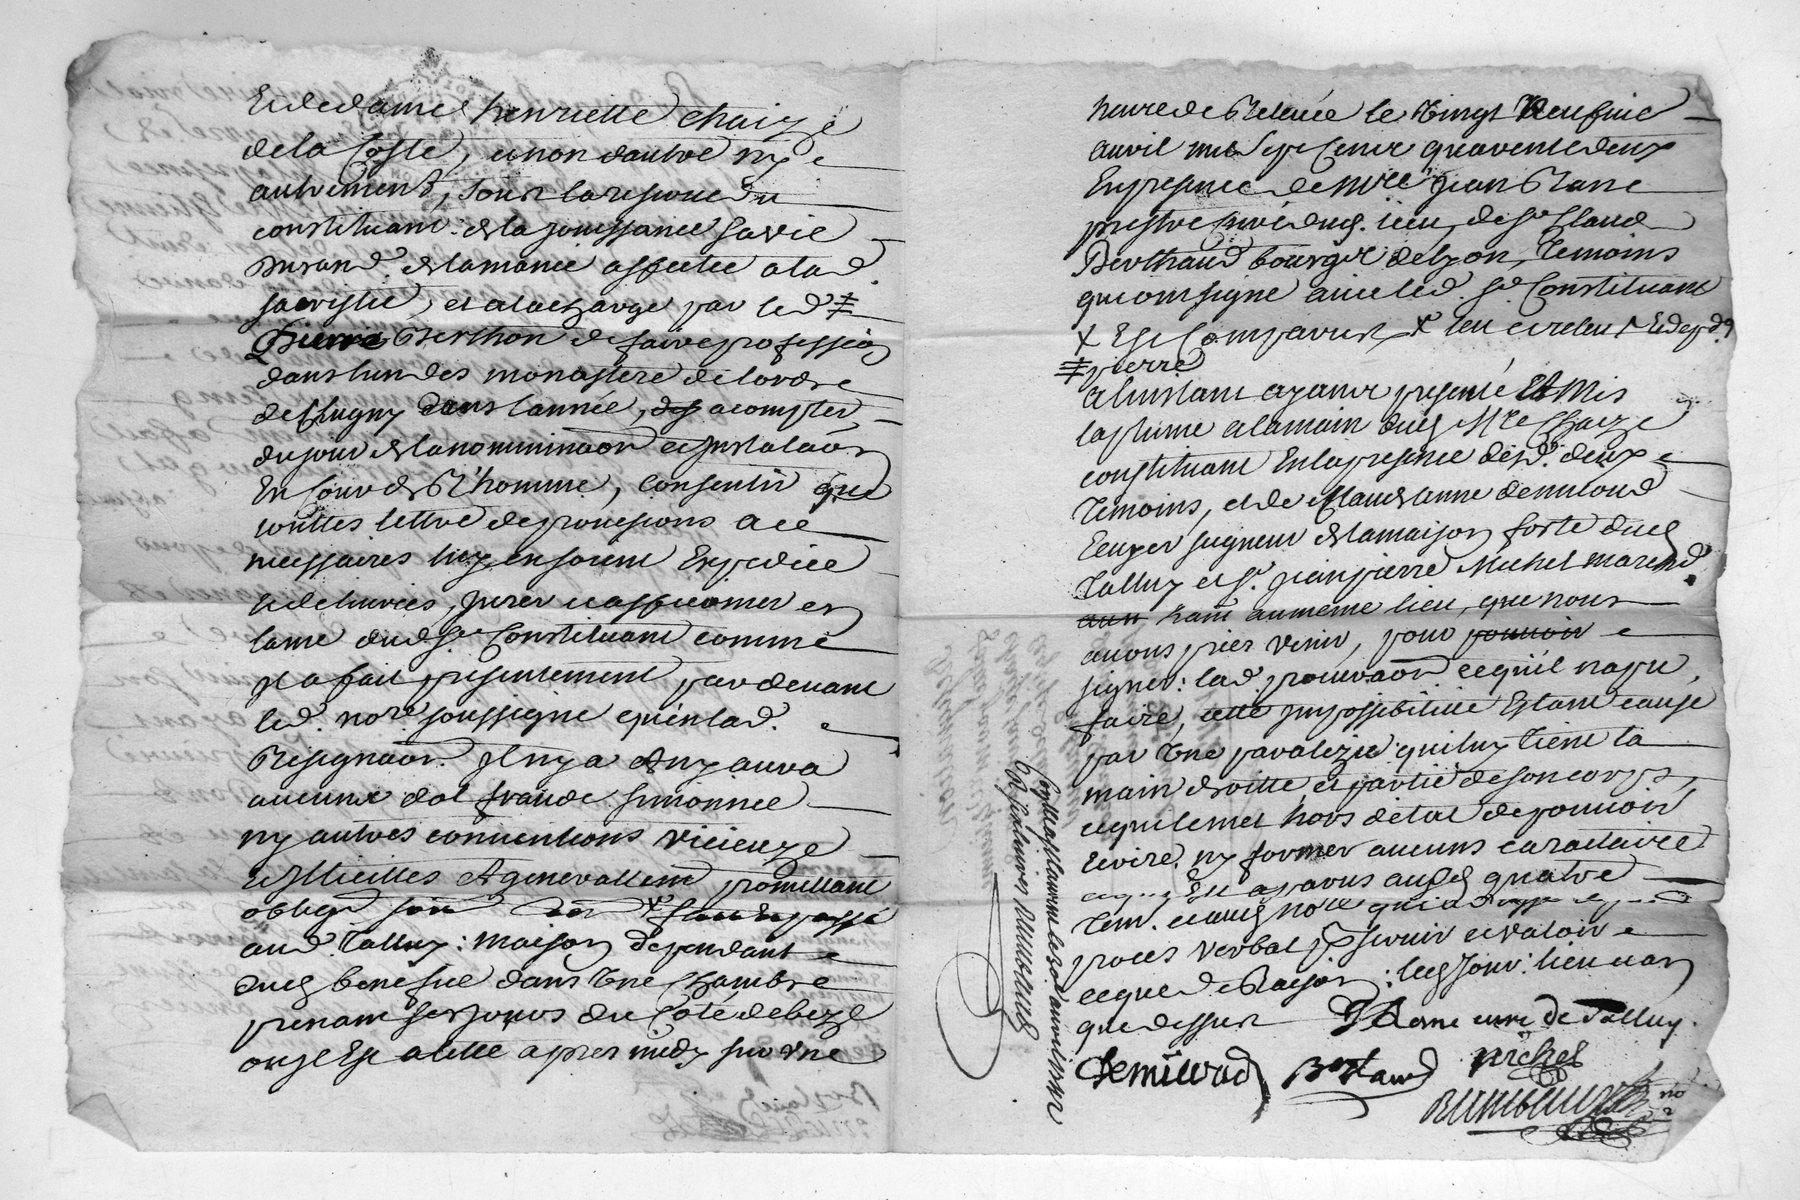 Et de dame henriette chaize
de la Coste, et non dautre ny
autrement, sous la reserve du
constituant de la jouissance sa vie
durand de la manse affectée a lad.
sacristie, et a la charge par led ‡
Pierre Berthon de faire profession
dans lun des monastere de lordre
de Clugny dans lannée, a compter
du jour de la nomminaon et Instalaon
En Cour de Rhomme, consentir que
touttes lettre de provisions a ce
necessaires luy en soient Expediée
et delivrées, jurer et affirmer en
lame dud Sr Constituant comme
Il a fait presentement par devant
led. nore soussigne quen lad.
Resignaon Il ny a et ny aura
aucune dol fraude simonnie
ny autres conventions vicieuze
et Illicittes Et generallemt promettant
oblign son fait Et passé
aud. Talluy: maison dependant
dud benefice dans Une Chambre
prenant ses jours du Coté de bize
onze Et a lettée apres midy sur Une
heure de Relevée le Vingt Neufvie
avril mil sept Cent quarente deux
En presence de Mre Jean Rane
prestre Curé dud. lieu, de Sr Claud
Berthaud bourgs de Lyon, Temoins
qui ont signe avec led. Sr Constituant
X Et Comparant
‡ pierre
a linstant ayant presenté Et Mis
la plume a la main dud Mre Chaize
constituant En la presence desd. deux
Temoins, et de Claude anne demiloud
Ecuyer seigneur de la maison forte dud
Talluy et Sr jean pierre Michel marchd
aumême lieu, que nous
avons prier venir, pour pouvoir
signer lad. procuraon ce qu'il na pu
faire, cette Impossibilité Estant cause
par Une paralezie qui luy tient la
main droitte et partie de son corps,
ce qui le met hors d'etat de pouvoir
Ecrire, ny former aucuns caractaire
ce qui Est aparus ausd quatre
Tem. et aud nore qui a
proces verbal pr servir et valoir
ce que de Raison: led Jour: lieu et an
que dessus JRane curé de Talluy.
Demiloud Bertaud Michel
no
re
Controllé a St Laurent le 30e avril 1742